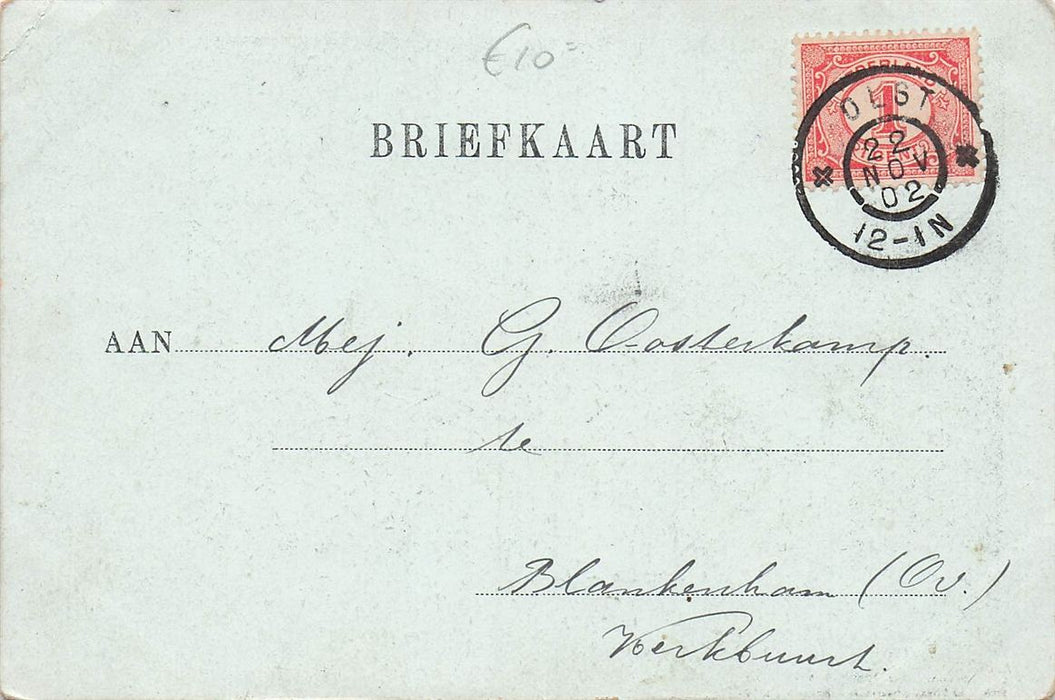 €10=
BRIEFKAART
NEDERLAND
1
CENT
OLST
22
NOV
02
12-1N
AAN Mej. G. Oosterkamp.
te
Blankenham (Ov.)
Kerkbuurt.